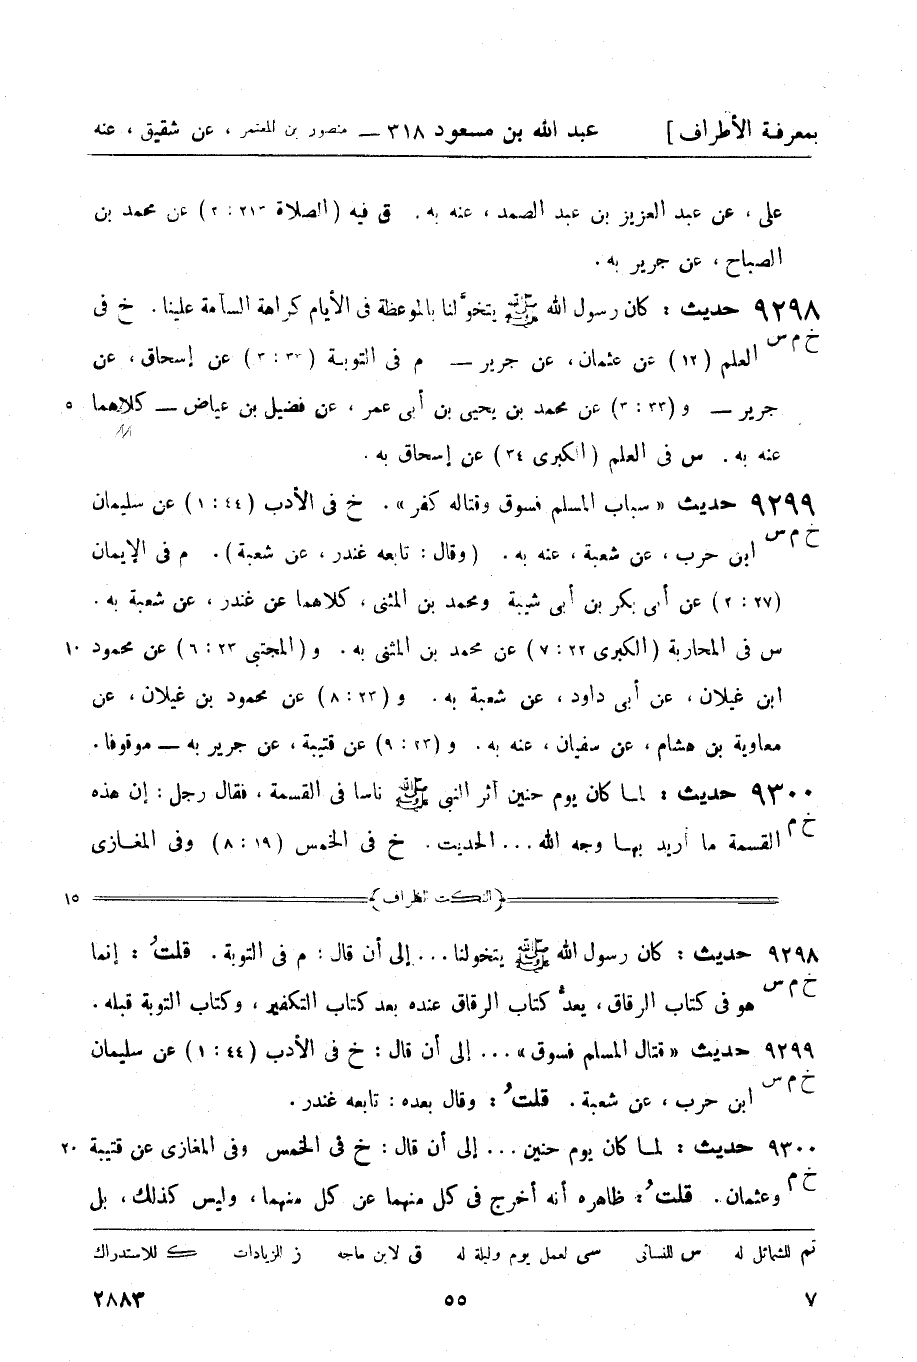 بمعرفة الأطراف ] عبد الله بن مسعود ٣١٨ — منصور بن المعتمر ، عن شقيق ، عنه
على ، عن عبد العزيز بن عبد الصمد ، عنه به . ق فيه ( الصلاة ٢١٣ : ٢ ) عن محمد بن
الصباح ، عن جرير به .
٩٢٩٨ حديث : كان رسول الله ﷺ يتخوَّلنا بالموعظة فى الأيام كراهة السآمة علينا . خ فى
خ م س العلم ( ١٢ ) عن عثمان ، عن جرير — م فى التوبة ( : ٣ ) عن إسحاق ، عن
جرير — و ( ٣٣ : ٣ ) عن محمد بن يحيى بن أبى عمر ، عن فضيل بن عياض — كلاهما ٥
عنه به . س فى العلم ( الكبرى ٣٤ ) عن إسحاق به .
٩٢٩٩ حديث « سباب المسلم فسوق وقتاله كفر » . خ فى الأدب ( ٤٤ : ١ ) عن سليمان
خ م س ابن حرب ، عن شعبة ، عنه به . ( وقال : تابعه غندر ، عن شعبة ) . م فى الإيمان
( ٢٧ : ٢ ) عن أبى بكر بن أبى شيبة ومحمد بن المثنى ، كلاهما عن غندر ، عن شعبة به .
س فى المحاربة ( الكبرى ٢٢ : ٧ ) عن محمد بن المثنى به . و ( المجتبى ٢٣ : ٦ ) عن محمود ١٠
ابن غيلان ، عن أبى داود ، عن شعبة به . و ( ٢٣ : ٨ ) عن محمود بن غيلان ، عن
معاوية بن هشام ، عن سفيان ، عنه به . و ( ٢٣ : ٩ ) عن قتيبة ، عن جرير به — موقوفا .
٩٣٠٠ حديث : لما كان يوم حنين آثر النبى ﷺ ناسا فى القسمة ، فقال رجل : إن هذه
خ م القسمة ما أريد بها وجه الله ... الحديث . خ فى الخمس ( ١٩ : ٨ ) وفى المغازى
{ النكت الظراف } ١٥
٩٢٩٨ حديث : كان رسول الله ﷺ يتخولنا ... إلى أن قال : م فى التوبة . قلتُ : إنما
خ م س هو فى كتاب الرقاق ، يعدُّ كتاب الرقاق عنده بعد كتاب التكفير ، وكتاب التوبة قبله .
٩٢٩٩ حديث « قتال المسلم فسوق » ... إلى أن قال : خ فى الأدب ( ٤٤ : ١ ) عن سليمان
خ م س ابن حرب ، عن شعبة . قلتُ : وقال بعده : تابعه غندر .
٩٣٠٠ حديث : لما كان يوم حنين ... إلى أن قال : خ فى الخمس وفى المغازى عن قتيبة ٢٠
خ م وعثمان . قلتُ : ظاهره أنه أخرج فى كل منهما عن كل منهما ، وليس كذلك ، بل
تم للشمائل له س للنسائى سى لعمل يوم وليلة له ق لابن ماجه ز الزيادات ك للاستدراك
٧ ٥٥ ٢٨٨٣